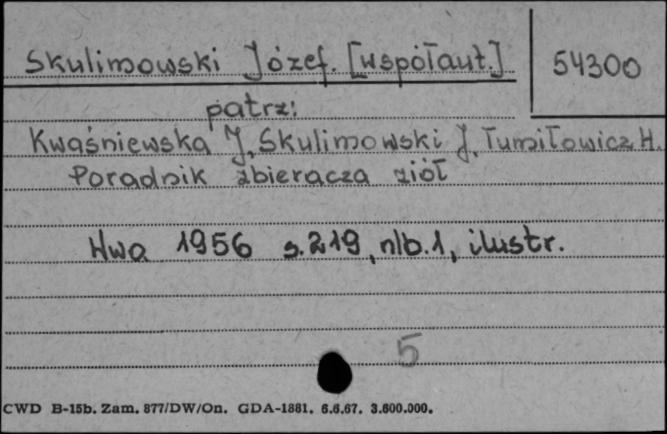 Skulimowski Józef. [współaut.] 54300
patrz:
Kwaśniewska J, Skulimowski J, Tumiłowicz H.
Poradnik zbieracza ziół
Wwa 1956 s. 219, nlb. 1, ilustr.
5
CWD B-15b. Zam. 877/DW/On. GDA-1881. 6.6.67. 3.600.000.